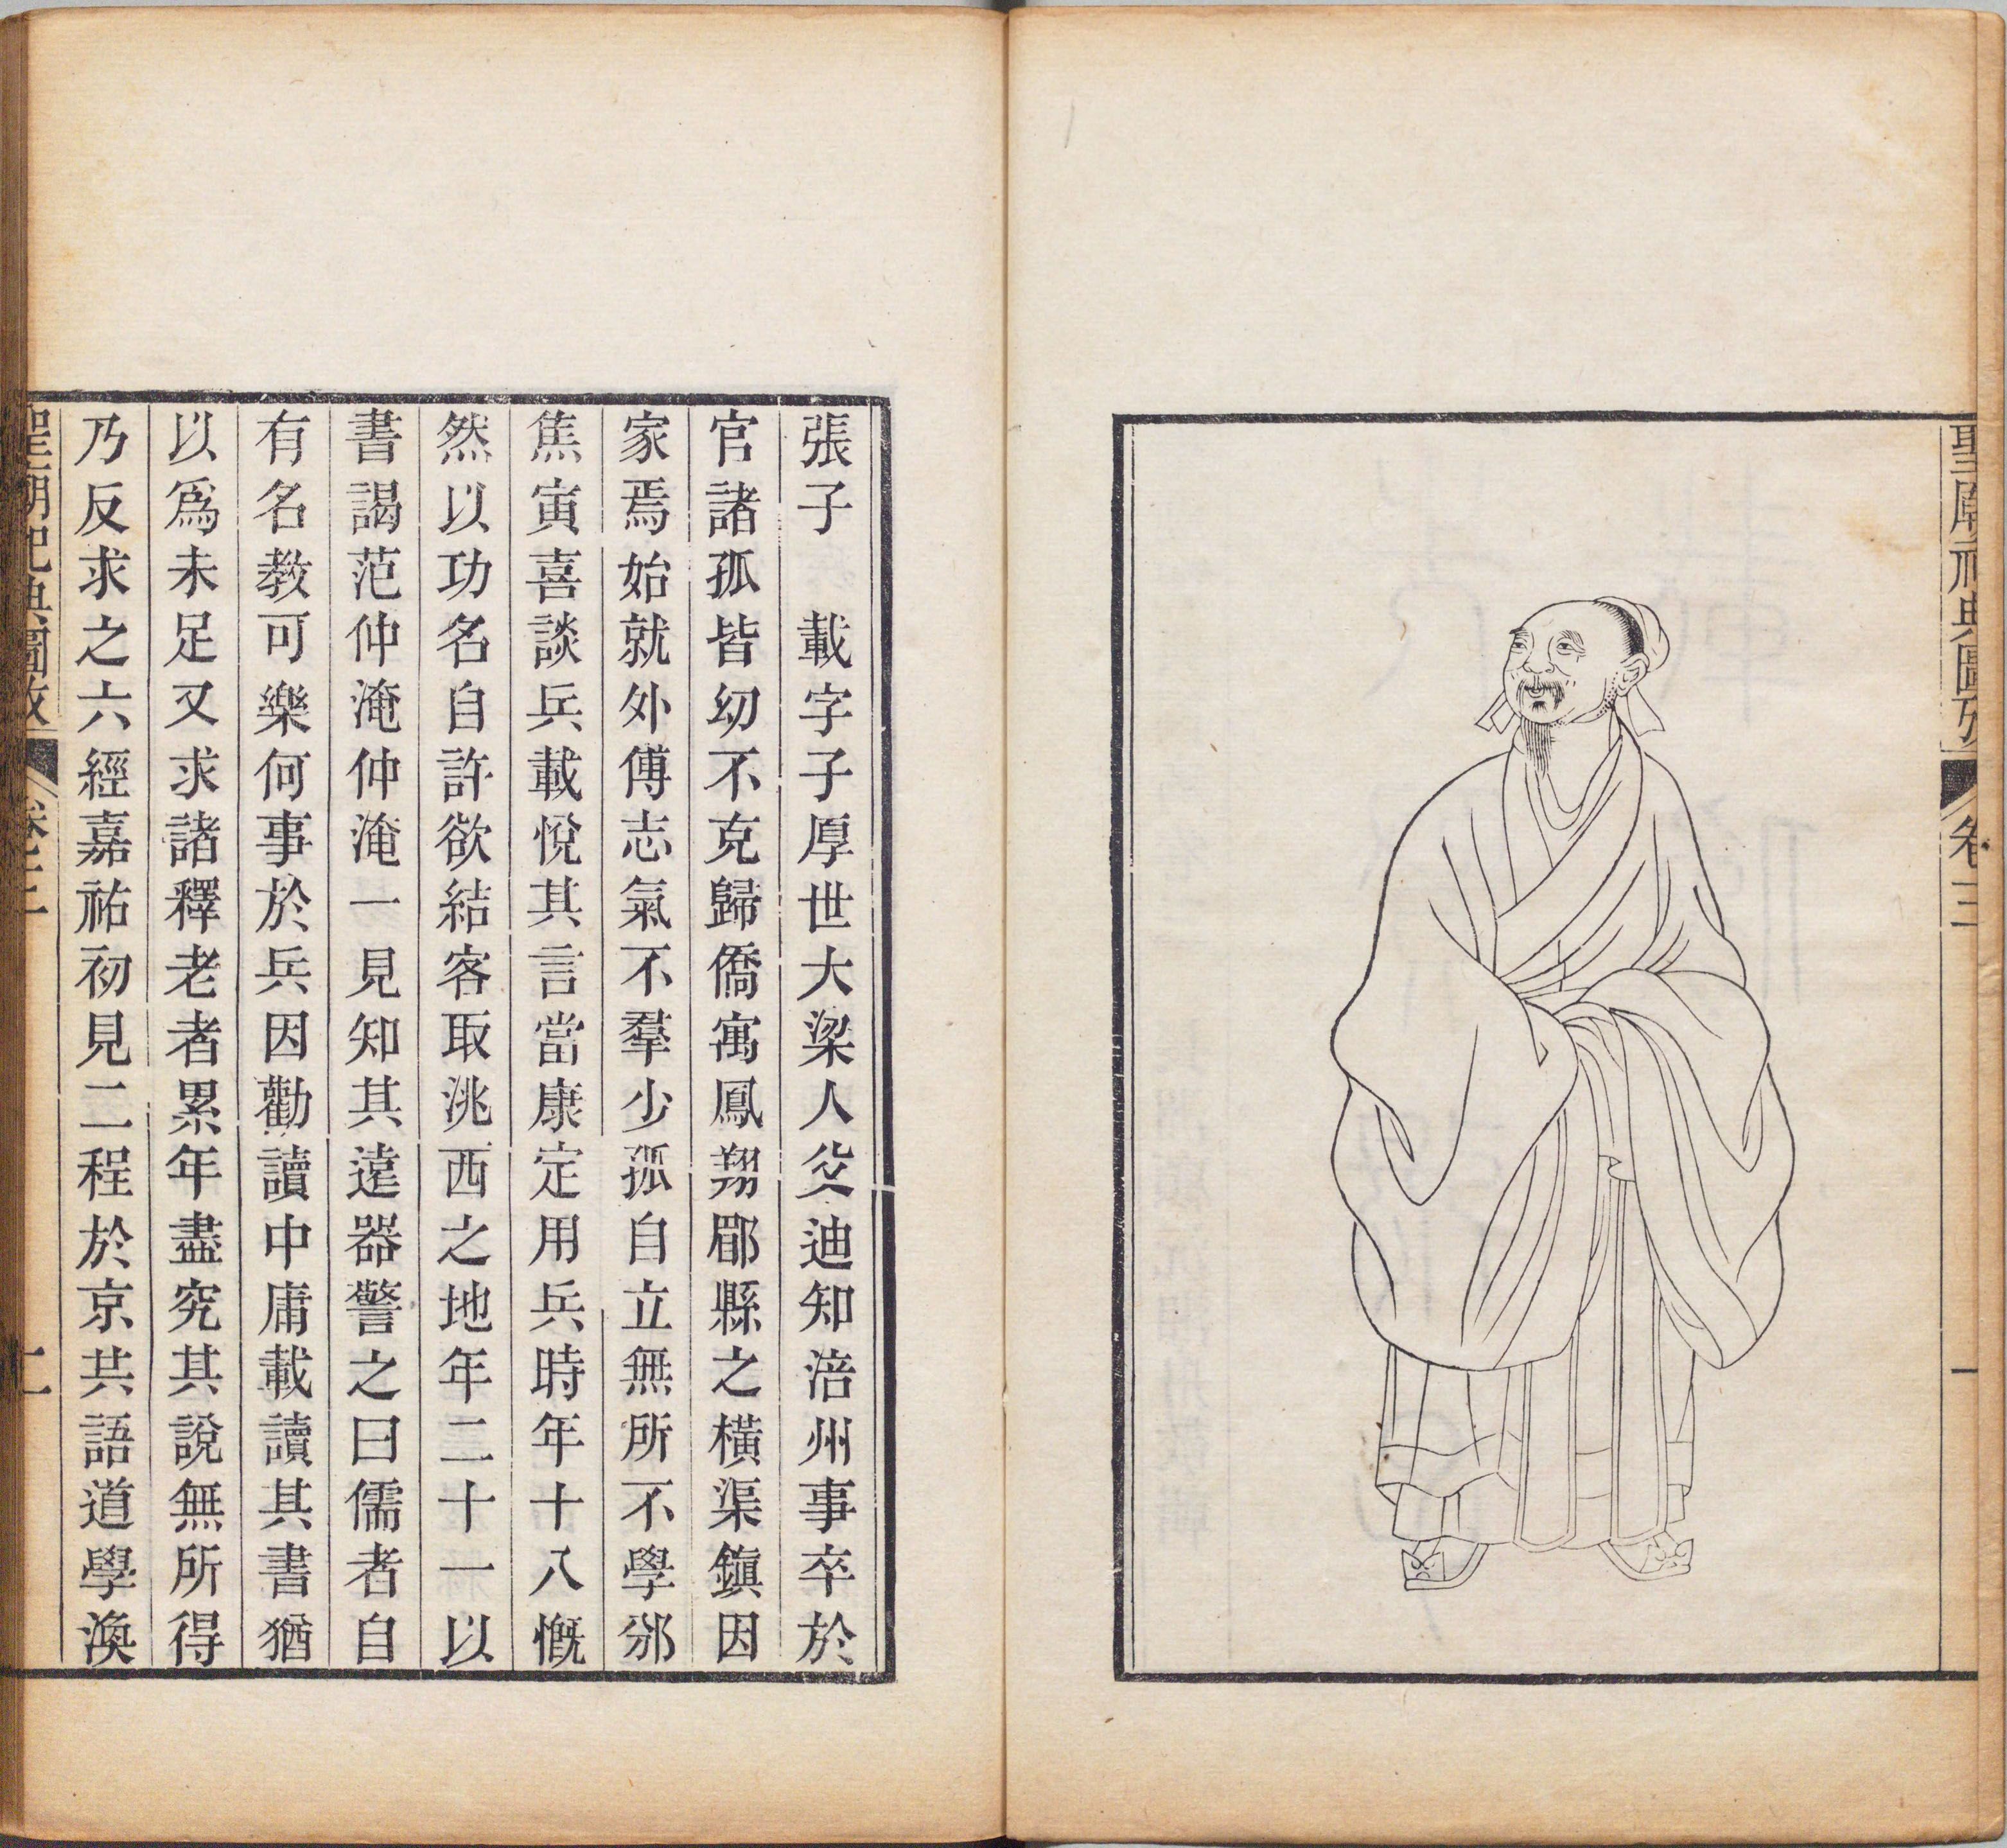 聖廟祀典圖攷 卷三 一
張子 載字子厚世大梁人父迪知涪州事卒於
官諸孤皆幼不克歸僑寓鳳翔郿縣之橫渠鎮因
家焉始就外傅志氣不羣少孤自立無所不學邠
焦寅喜談兵載悅其言當康定用兵時年十八慨
然以功名自許欲結客取洮西之地年二十一以
書謁范仲淹仲淹一見知其遠器警之曰儒者自
有名教可樂何事於兵因勸讀中庸載讀其書猶
以爲未足又求諸釋老者累年盡究其說無所得
乃反求之六經嘉祐初見二程於京共語道學渙
聖廟祀典圖攷 卷三 二